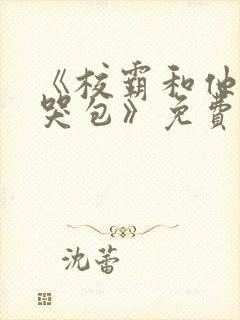 《校霸和他
哭包》免费
沈蕾